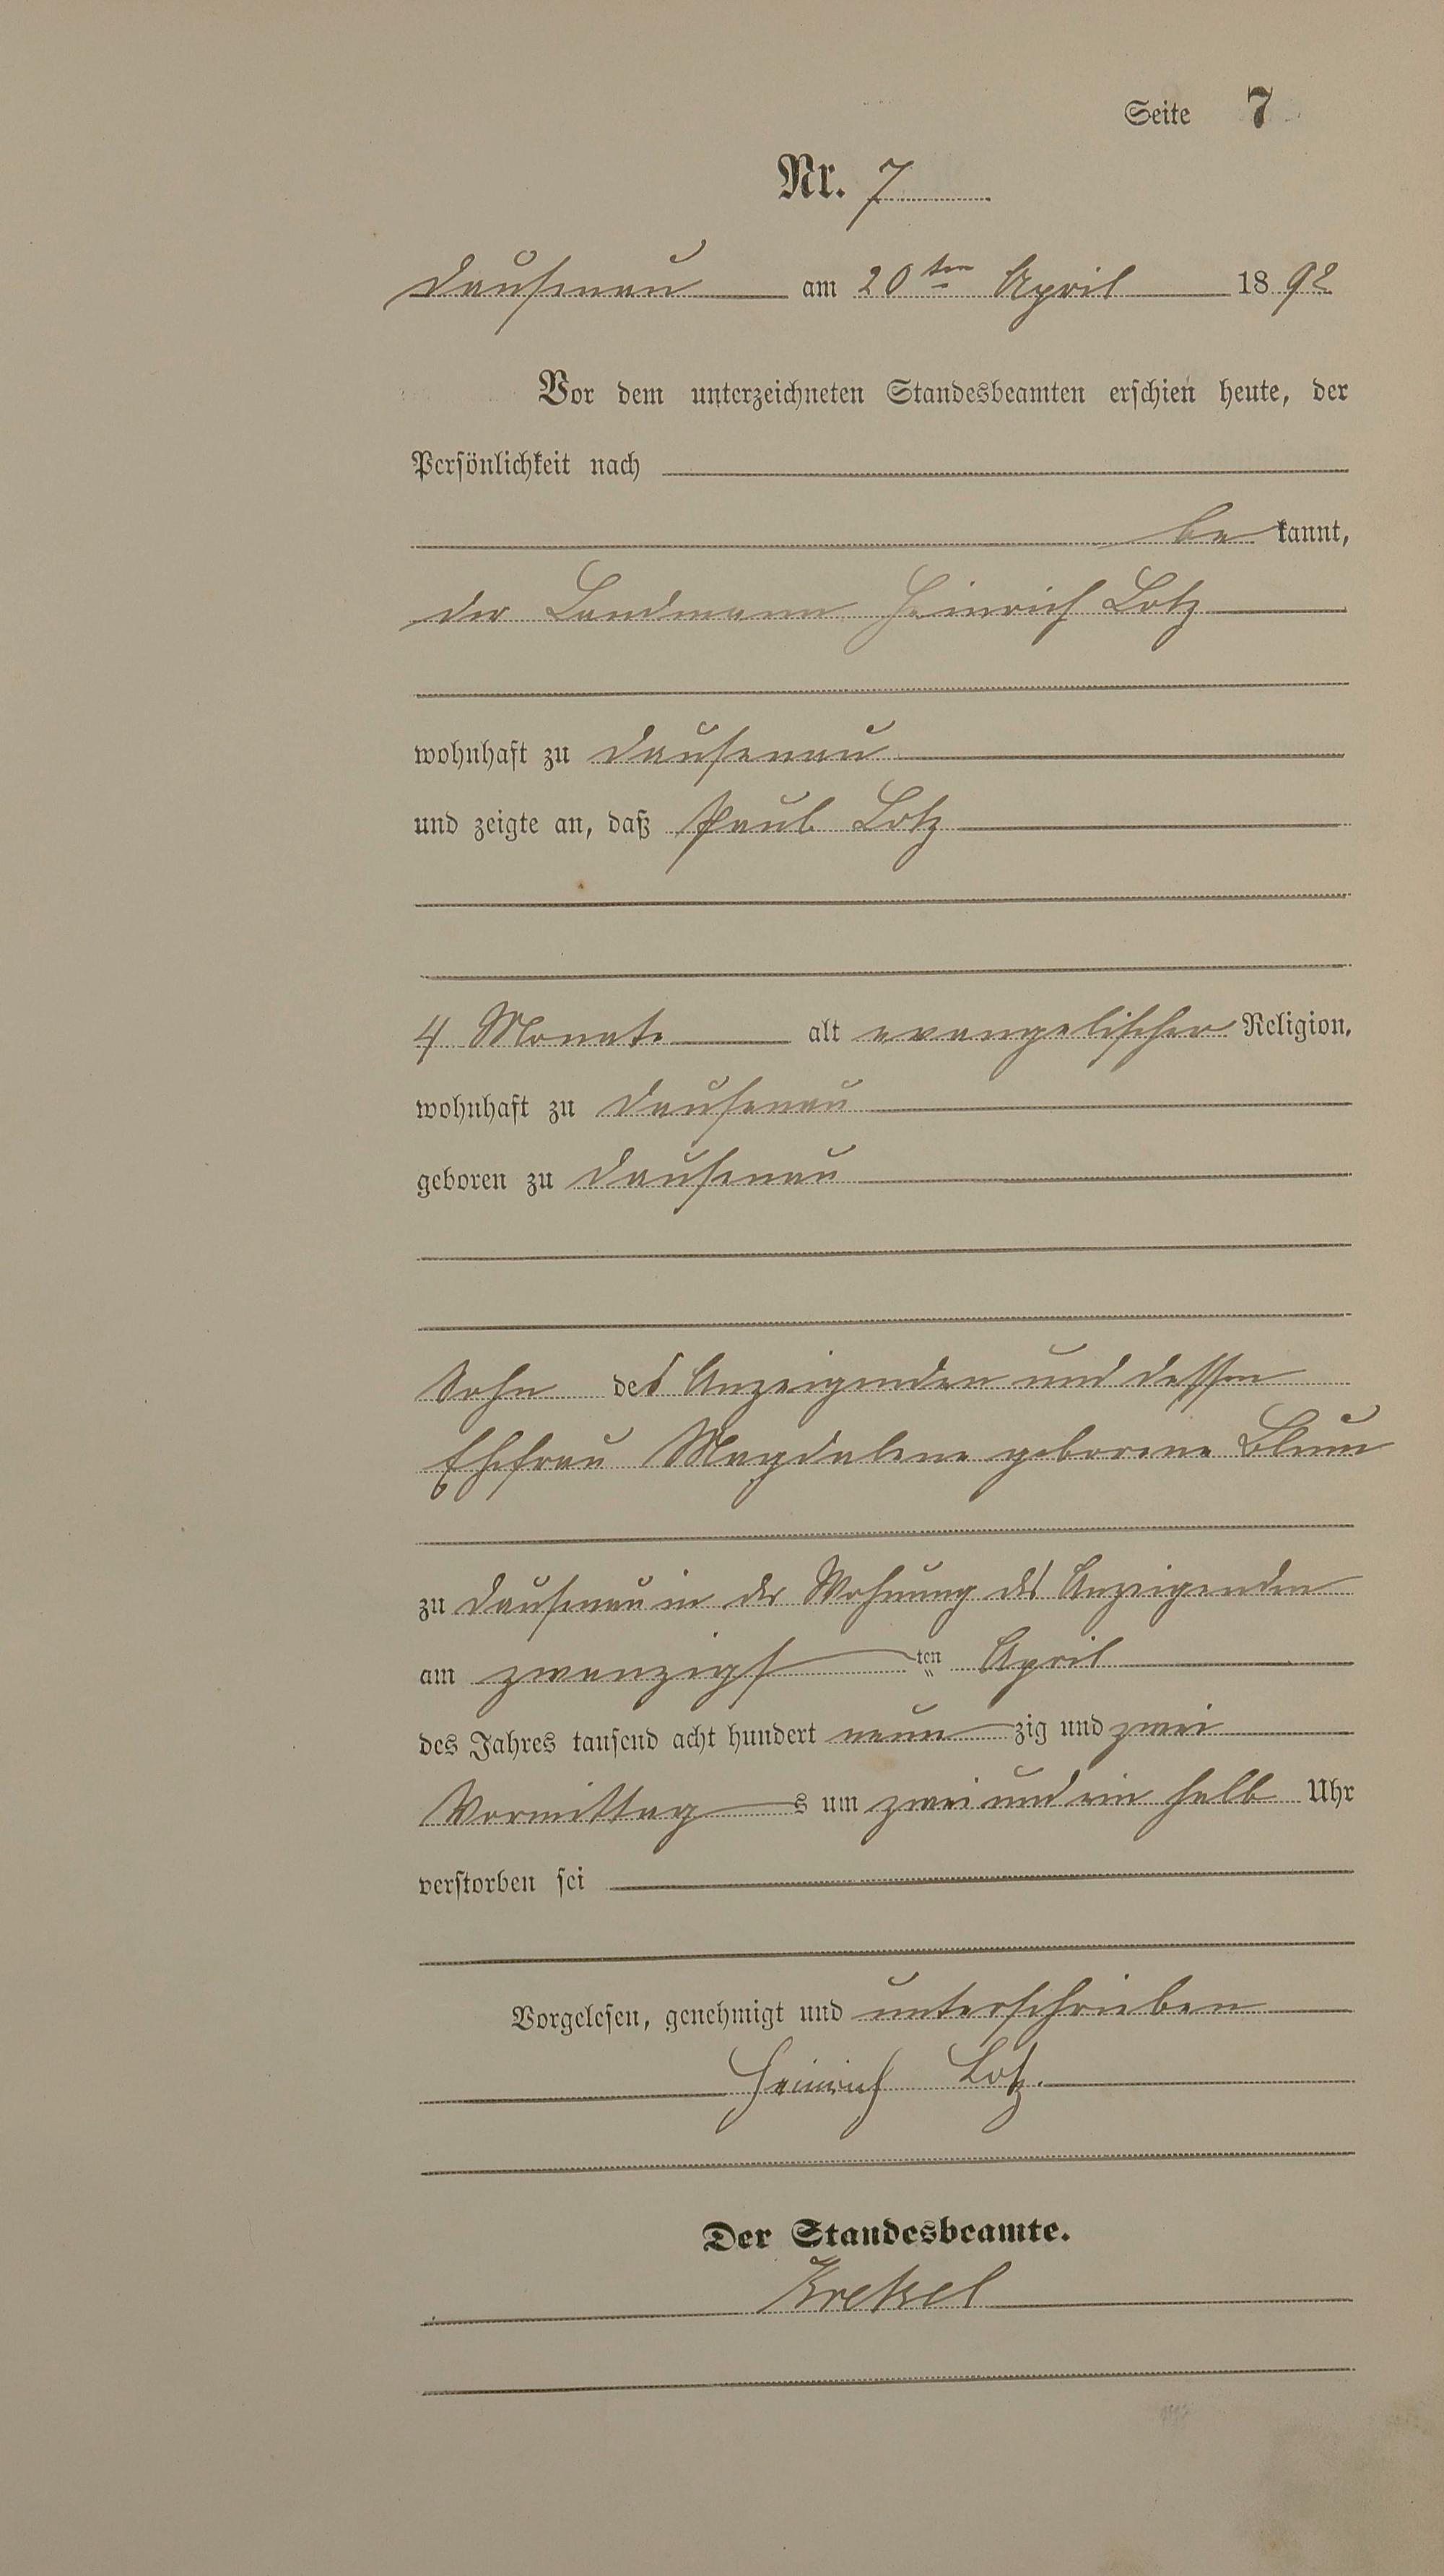 Seite 7
Nr. 7
Dausenau am 20ten April 1892
Vor dem unterzeichneten Standesbeamten erschien heute, der
Persönlichkeit nach
bekannt,
der Landmann Heinrich Lotz
wohnhaft zu Dausenau
und zeigte an, daß Paul Lotz
4 Monate alt evangelischer Religion,
wohnhaft zu Dausenau
geboren zu Dausenau
Sohn des Anzeigenden und dessen
Ehefrau Magdalene geborene Blum
zu Dausenau in der Wohnung des Anzeigenden
am zwanzigsten April
des Jahres tausend acht hundert neunzig und zwei
Vormittags um zwei und ein halb Uhr
verstorben sei
Vorgelesen, genehmigt und unterschrieben
Heinrich Lotz.
Der Standesbeamte.